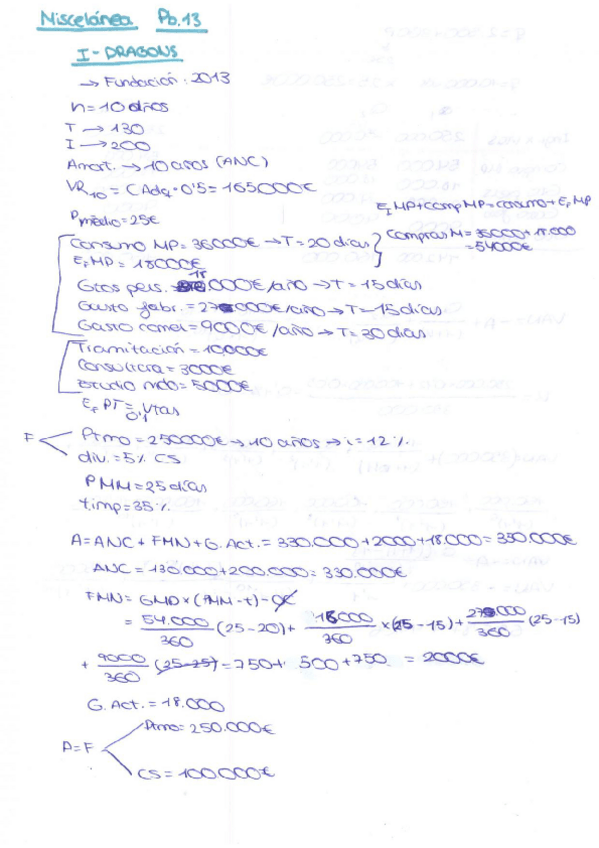 Miscelánea Pb.13
I - DRAGONS
→ Fundación: 2013
n = 10 años
T → 130
I → 200
Amort. → 10 años (ANC)
VR10 = C Adq · 0'5 = 165000€
Pmedio = 25€
EIMP + CompMP = consumo + EFMP
Consumo MP = 36000€ → T = 20 días
Compras M = 36000 + 18.000 = 54000€
EFMP = 18000€
Gtos pers. = 18.000€/año → T = 15 días
Gasto fabr. = 27000€/año → T = 15 días
Gasto comel = 9000€/año → T = 30 días
Tramitación = 10,000€
Consultora = 3000€
Estudio mdo = 5000€
EF PT = 0'1 Vtas
F
Ptmo = 250000€ → 10 años → i = 12%
div. = 5% CS
PMM = 25 días
timp = 35%
A = ANC + FMN + G. Act. = 330.000 + 2000 + 18.000 = 350.000€
ANC = 130.000 + 200.000 = 330.000€
FMN = GMD × (PMM - t) -
= 54.000/360 (25 - 20) + 18000/360 × (25 - 15) + 27000/360 (25 - 15)
+ 9000/360 (25-25) = 750 + 500 + 750 = 2000€
G. Act. = 18.000
Ptmo = 250.000€
A = F
CS = 100.000€